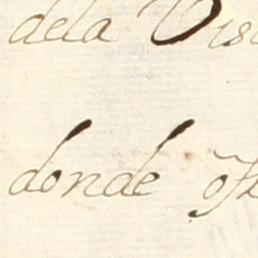 dela Vis
donde